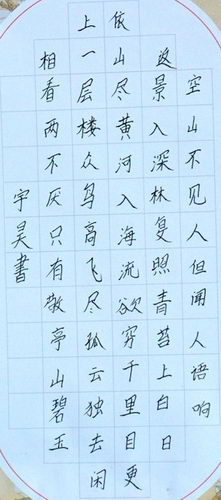 空山不见人但闻人语响
返景入深林复照青苔上白日
依山尽黄河入海流欲穷千里目更
上一层楼众鸟高飞尽孤云独去闲
相看两不厌只有敬亭山碧玉
宇昊書